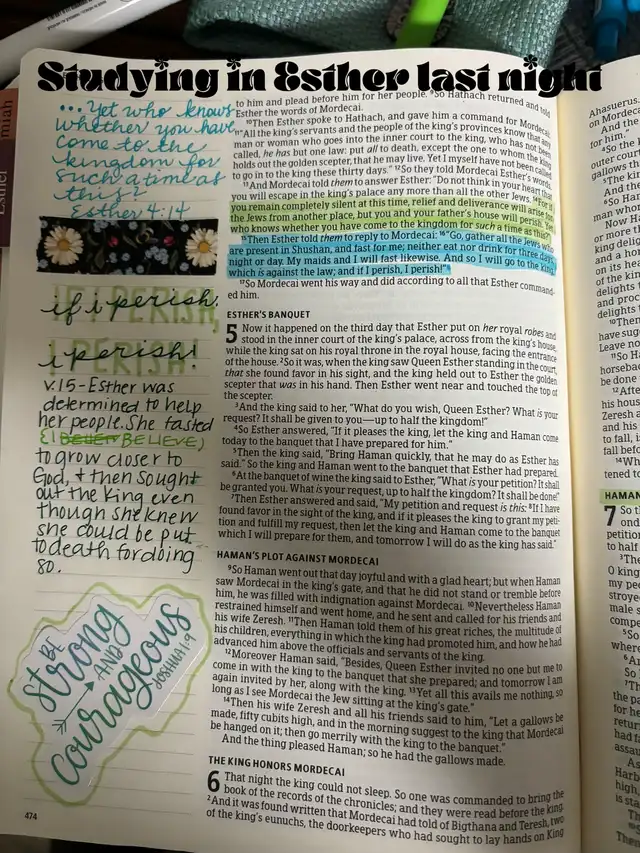 Studying in Esther last night
Esther
miah
...Yet who knows
whether you have
come to the
kingdom for
such a time as
this?
Esther 4:14
IF I PERISH,
if i perish,
I PERISH!
i perish!
v.15-Esther was
determined to help
her people. She fasted
(I BELIEVE)
to grow closer to
God, + then sought
out the King even
though she knew
she could be put
to death for doing
so.
BE
Strong
AND
Courageous
JOSHUA 1:9
474
to him and plead before him for her people. ⁹So Hathach returned and told
Esther the words of Mordecai.
¹⁰Then Esther spoke to Hathach, and gave him a command for Mordecai:
¹¹"All the king's servants and the people of the king's provinces know that any
man or woman who goes into the inner court to the king, who has not been
called, he has but one law: put all to death, except the one to whom the king
holds out the golden scepter, that he may live. Yet I myself have not been called
to go in to the king these thirty days." ¹²So they told Mordecai Esther's words.
¹³And Mordecai told them to answer Esther: "Do not think in your heart that
you will escape in the king's palace any more than all the other Jews. ¹⁴For if
you remain completely silent at this time, relief and deliverance will arise for
the Jews from another place, but you and your father's house will perish. Yet
who knows whether you have come to the kingdom for such a time as this?"
¹⁵Then Esther told them to reply to Mordecai: ¹⁶"Go, gather all the Jews who
are present in Shushan, and fast for me; neither eat nor drink for three days,
night or day. My maids and I will fast likewise. And so I will go to the king,
which is against the law; and if I perish, I perish!"
¹⁷So Mordecai went his way and did according to all that Esther command-
ed him.
ESTHER'S BANQUET
5 Now it happened on the third day that Esther put on her royal robes and
stood in the inner court of the king's palace, across from the king's house,
while the king sat on his royal throne in the royal house, facing the entrance
of the house. ²So it was, when the king saw Queen Esther standing in the court,
that she found favor in his sight, and the king held out to Esther the golden
scepter that was in his hand. Then Esther went near and touched the top of
the scepter.
³And the king said to her, "What do you wish, Queen Esther? What is your
request? It shall be given to you—up to half the kingdom!"
⁴So Esther answered, "If it pleases the king, let the king and Haman come
today to the banquet that I have prepared for him."
⁵Then the king said, "Bring Haman quickly, that he may do as Esther has
said." So the king and Haman went to the banquet that Esther had prepared.
⁶At the banquet of wine the king said to Esther, "What is your petition? It shall
be granted you. What is your request, up to half the kingdom? It shall be done!"
⁷Then Esther answered and said, "My petition and request is this: ⁸If I have
found favor in the sight of the king, and if it pleases the king to grant my peti-
tion and fulfill my request, then let the king and Haman come to the banquet
which I will prepare for them, and tomorrow I will do as the king has said."
HAMAN'S PLOT AGAINST MORDECAI
⁹So Haman went out that day joyful and with a glad heart; but when Haman
saw Mordecai in the king's gate, and that he did not stand or tremble before
him, he was filled with indignation against Mordecai. ¹⁰Nevertheless Haman
restrained himself and went home, and he sent and called for his friends and
his wife Zeresh. ¹¹Then Haman told them of his great riches, the multitude of
his children, everything in which the king had promoted him, and how he had
advanced him above the officials and servants of the king.
¹²Moreover Haman said, "Besides, Queen Esther invited no one but me to
come in with the king to the banquet that she prepared; and tomorrow I am
again invited by her, along with the king. ¹³Yet all this avails me nothing, so
long as I see Mordecai the Jew sitting at the king's gate."
¹⁴Then his wife Zeresh and all his friends said to him, "Let a gallows be
made, fifty cubits high, and in the morning suggest to the king that Mordecai
be hanged on it; then go merrily with the king to the banquet."
And the thing pleased Haman; so he had the gallows made.
THE KING HONORS MORDECAI
6 That night the king could not sleep. So one was commanded to bring the
book of the records of the chronicles; and they were read before the king.
²And it was found written that Mordecai had told of Bigthana and Teresh, two
of the king's eunuchs, the doorkeepers who had sought to lay hands on King
Ahasuerus.
on Mordecai
And the
for him."
HAMAN
7 So th